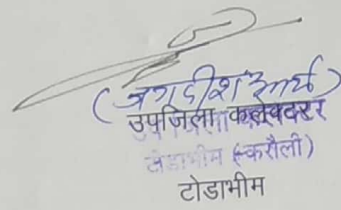 (जगदीश आर्य)
उपजिला कलेक्टर
टोडाभीम (करौली)
टोडाभीम